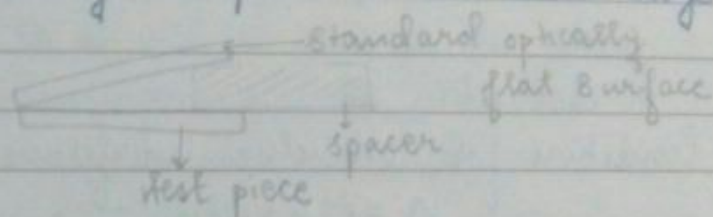 standard optically
flat surface
spacer
test piece